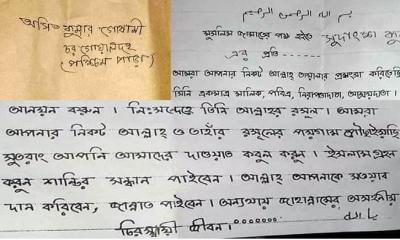 অসিত কুমার গোস্বামী
চর গোয়ালদহ
(পশ্চিম পাড়া)
মুসলিম জামাতের পক্ষ হইতে সুদীপ্ত
এর প্রতি
আমরা আপনার নিকট আল্লাহ তায়ালার প্রশংসা করিতেছি
তিনি একমাত্র মালিক, পবিত্র, নিরাপত্তাদাতা,
আনয়ন করুন। নিঃসন্দেহে তিনি আল্লাহর রসূল। আমরা
আপনার নিকট আল্লাহ ও তাঁহার রসূলের পয়গাম পৌঁছাইয়াছি
সুতরাং আপনি আমাদের দাওয়াত কবুল করুন। ইসলাম গ্রহন
করুন শান্তির সন্ধান পাইবেন। আল্লাহ আপনাকে সওয়াব
দান করিবেন, জান্নাত পাইবেন। অন্যথায় জাহান্নামের
চিরস্থায়ী জীবন।.......